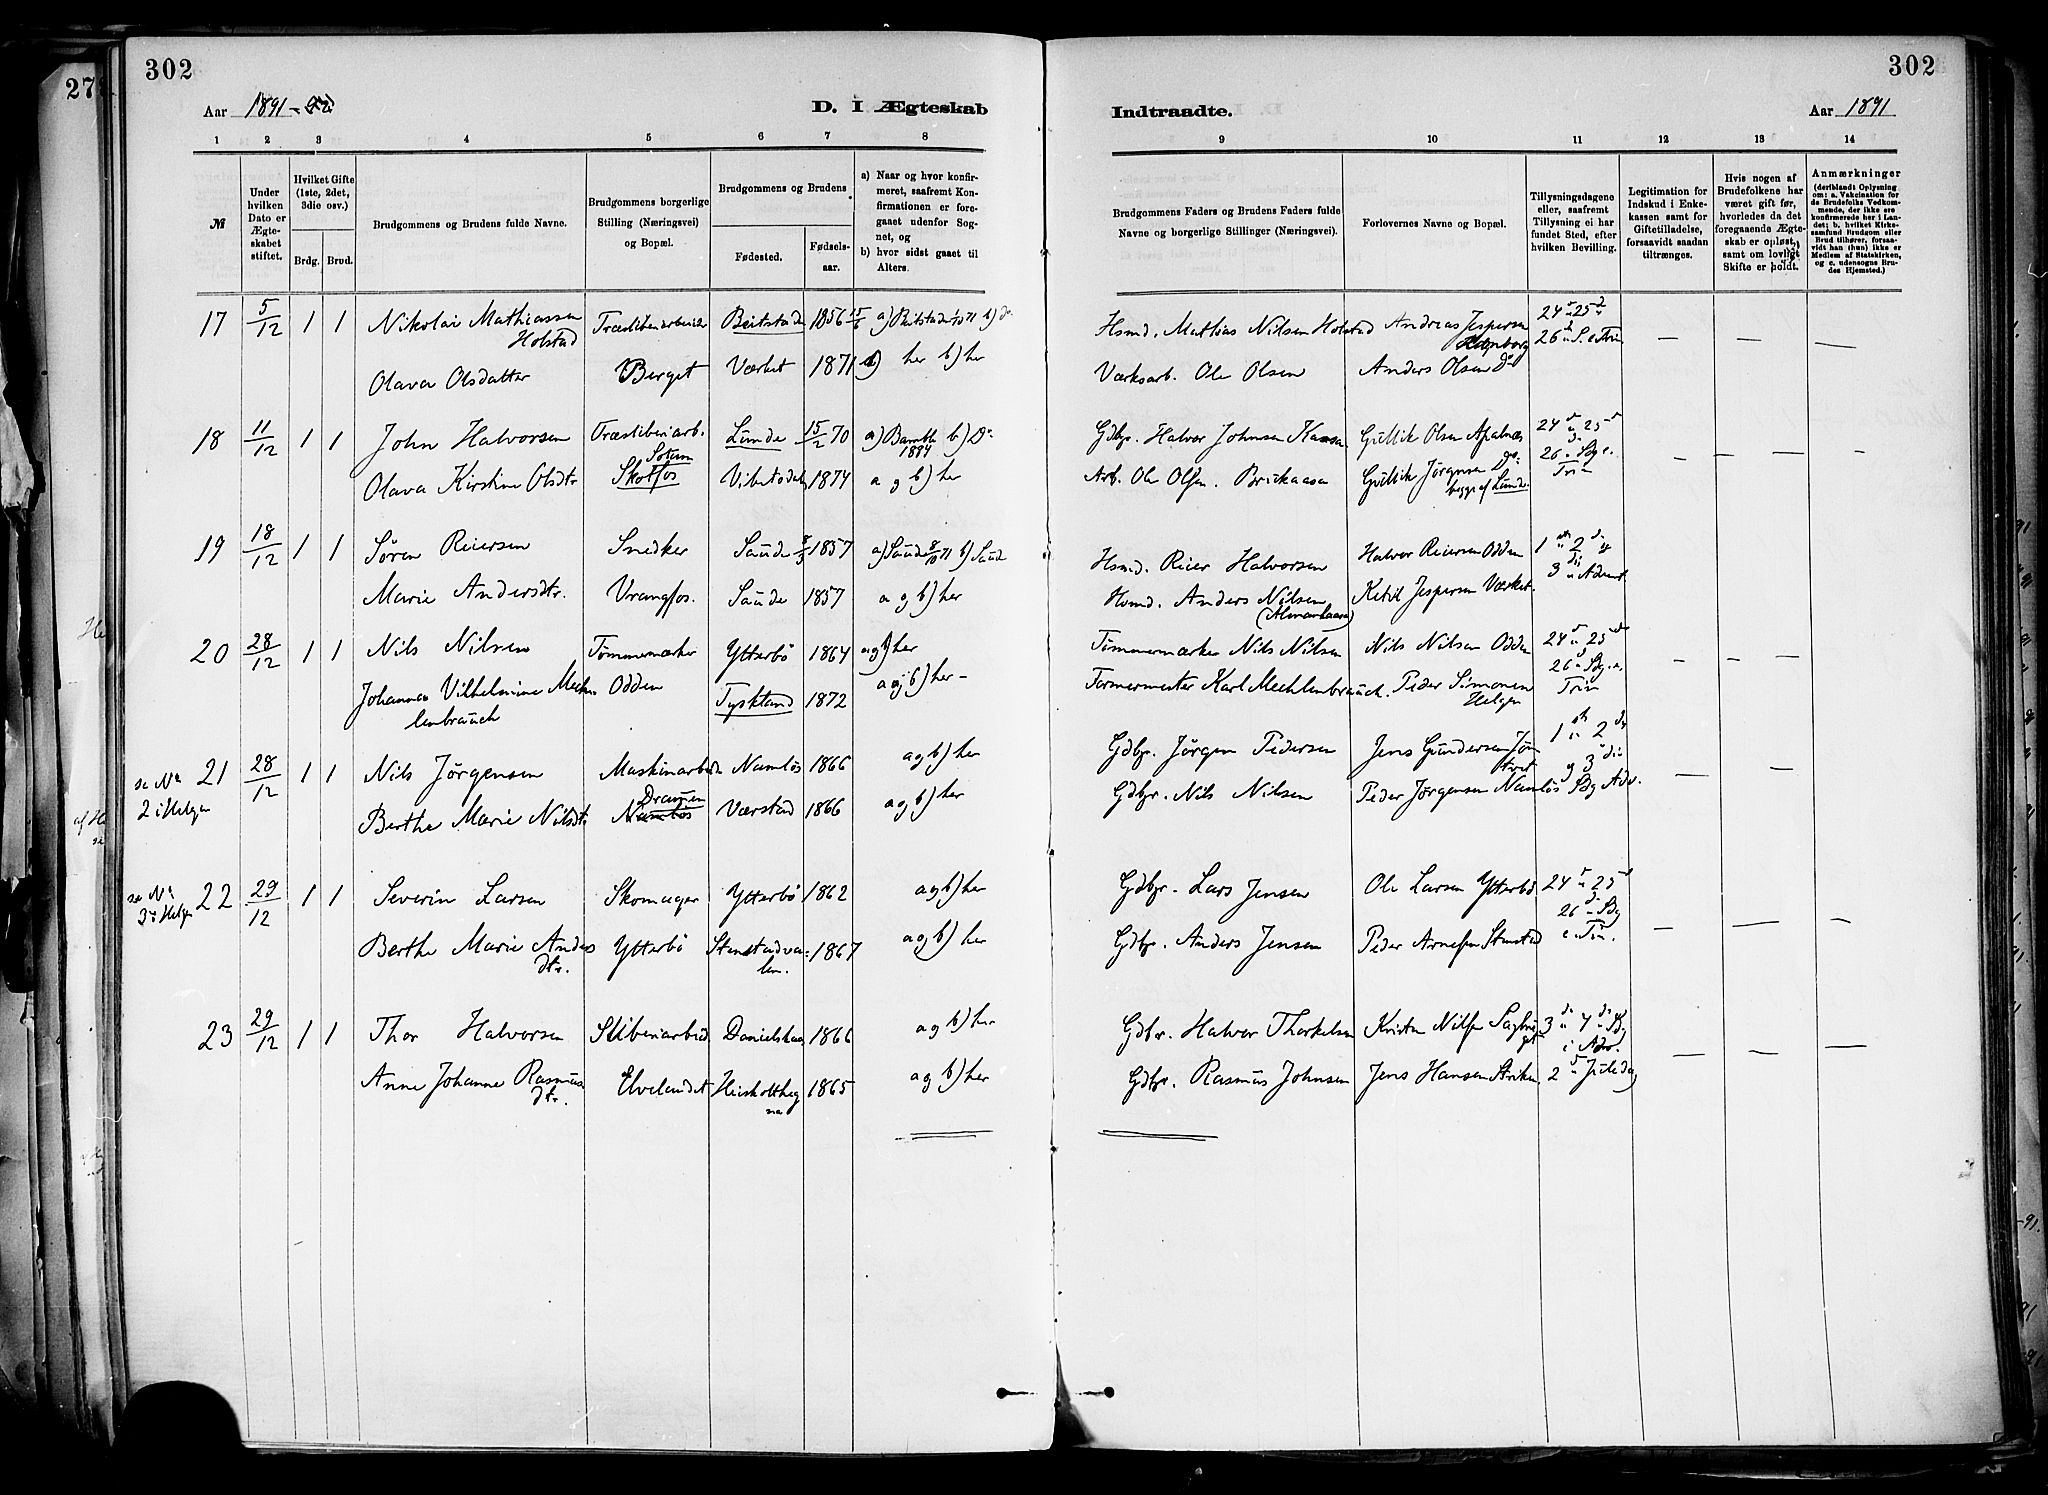 302
302
27
Aar 1891-92
D. I Ægteskab
Indtraadte.
Aar 1891
1 2 3 4 5 6 7 8
9 10 11 12 13 14
№
Under hvilken Dato er Ægteskabet stiftet.
Hvilket Gifte (1ste, 2det, 3die osv.)
Brdg. Brud.
Brudgommens og Brudens fulde Navne.
Brudgommens borgerlige Stilling (Næringsvei) og Bopæl.
Brudgommens og Brudens
Fødested. Fødselsaar.
a) Naar og hvor konfirmeret, saafremt Konfirmationen er foregaaet udenfor Sognet, og
b) hvor sidst gaaet til Alters.
Brudgommens Faders og Brudens Faders fulde Navne og borgerlige Stillinger (Næringsvei).
Forlovernes Navne og Bopæl.
Tillysningsdagene eller, saafremt Tillysning ei har fundet Sted, efter hvilken Bevilling.
Legitimation for Indskud i Enkekassen samt for Giftetilladelse, forsaavidt saadan tiltrænges.
Hvis nogen af Brudefolkene har været gift før, hvorledes da det foregaaende Ægteskab er opløst, samt om lovligt Skifte er holdt.
Anmærkninger (deriblandt Oplysning om: a. Vakcination for de Brudefolks Vedkommende, der ikke ere konfirmerede her i Landet; b. hvilket Kirkesamfund Brudgom eller Brud tilhører, forsaavidt han (hun) ikke er Medlem af Statskirken, og c. udensogns Brudes Hjemsted.)
17 5/12 1 1 Nikolai Mathiassen Holstad Træsliberiarbeider Beitstad 1856 15/6 a) Beitstad 1/10 71 b) do Hsmd. Mathias Nilsen Holstad Andreas Jespersen 24 u 25 d
26 u S. e Trin — — —
Olava Olsdatter Berget Værket 1871 a) her b) her Værksarb. Ole Olsen Anders Olsen Do
18 11/12 1 1 John Halvorsen Træsliberiarb. Lunde 15/2 70 a) Bamble 1884 b) Do. Gdbr. Halvor Johnsen Kaasa Gullik Olsen Apalnæs 24 u 25 d
26 u Sg e. Trin — — —
Olava Kirstine Olsdtr Sotum Skotfos 1874 a og b) her Arb. Ole Olsen. Brekaasa Gullik Jørgensen Do. begge af Lunde.
19 18/12 1 1 Søren Reiersen Snedker Saude 8/3 1857 a) Saude 8/10 71 b) Saude Hsmd. Reier Halvorsen Halvor Reiersen Odden 1 u 2 dg
3 u Advent
Marie Andersdtr. Vrangfos. Saude 1857 a og b) her Hsmd. Anders Nilsen Ketil Jespersen Værket.
20 28/12 1 1 Nils Nilsen Tømmermærker Ytterbø 1864 a og b) her Tømmermærker Nils Nilsen Nils Nilsen Odden 24 u 25 de
26 u Sg. e. Trin — — —
Johanna Vilhelmine Mechlenbrauch Odden Tyskland 1872 a og b) her — Formermester Karl Mechlenbrauch. Peder Simonsen Helgen
se No 2 i Helgen 21 28/12 1 1 Nils Jørgensen Maskinarbeide Namløs 1866 a og b) her Gdbr. Jørgen Pedersen Jens Gundersen 1 u 2 dg
og 3 die Sg Adv. — — —
Berthe Marie Nilsdtr Namløs Værstad 1866 a og b) her Gdbr. Nils Nilsen Peder Jørgensen Namløs
se No 3 i Helgen 22 29/12 1 1 Severin Larsen Skomager Ytterbø 1862 a og b) her Gdbr. Lars Jensen Ole Larsen Ytterbø 24 u 25 d
26 u Sg e. Trin. — — —
Berthe Marie Andersdtr. Ytterbø Stenstadvalen. 1867 a og b) her Gdbr. Anders Jensen Peder Arnesen Stenstad
23 29/12 1 1 Thor Halvorsen Sliberiarbeid Danielskaas 1866 a og b) her Gdbr. Halvor Thorkelsen Kristen Nilsen 3 u 4 Sg
i Adv. — — —
Anne Johanne Rasmusdtr. Elvelandet 1865 a og b) her Gdbr. Rasmus Johnsen Jens Hansen Striken 2 u Juledag